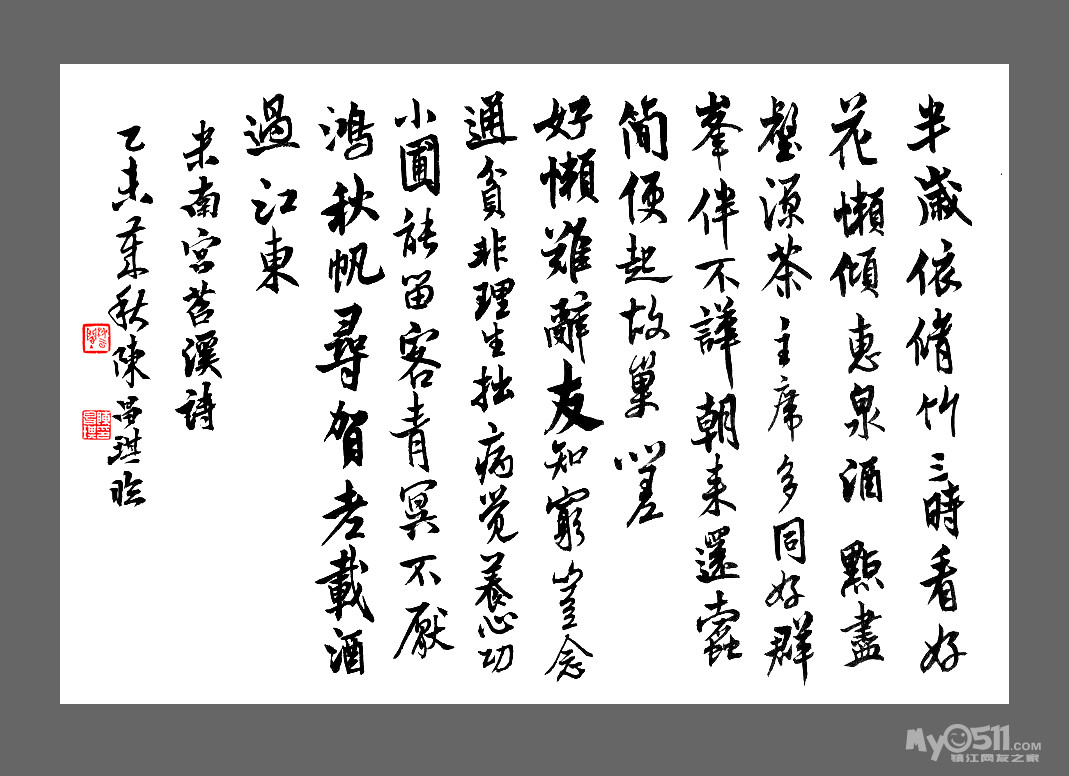 半歲依脩竹三時看好
花懶傾惠泉酒點盡
壑源茶主席多同好群
峯伴不譁朝来還蠹
简便起故巢嗟
好懶難辭友知窮豈念
通貧非理生拙病觉養心功
小圃能留客青冥不厭
鴻秋帆尋賀老載酒
過江東
米南宮苕溪詩
乙未秋陳昌琪临
My0511.COM
镇江网友之家